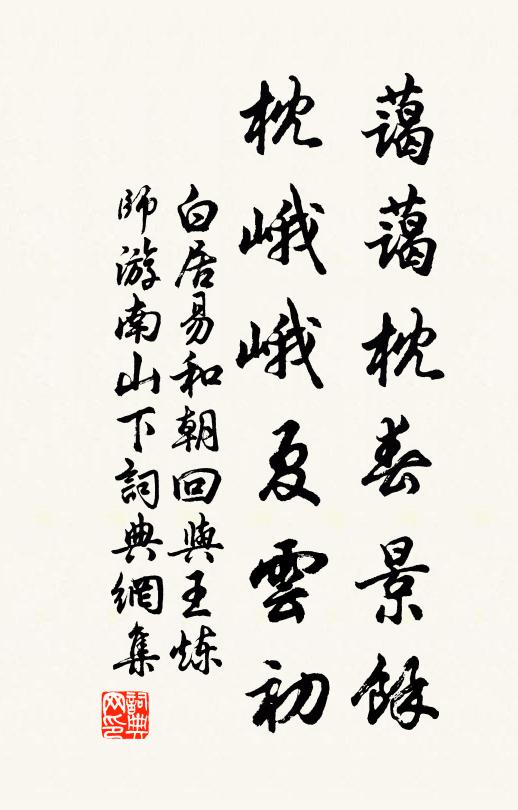 藹藹枕春景餘
枕峨峨夏雲初
白居易和朝回與王炼
師游南山下詞典網集
詞典
网印